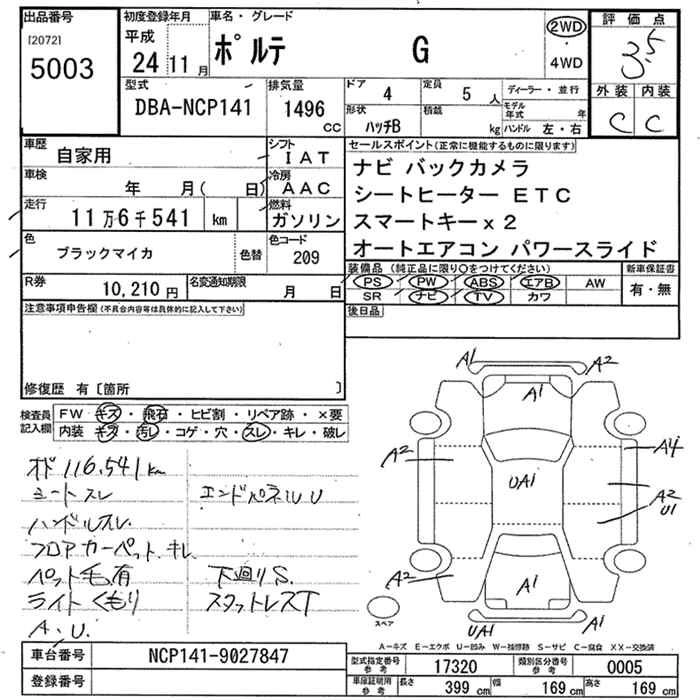 出品番号
[2072]
5003
初度登録年月
平成
24 11 月
車名・グレード
ポルテ G
2WD
・
4WD
評価点
3.5
外装 内装
C C
型式
DBA-NCP141
排気量
1496
CC
ドア 4
定員 5 人
形状 ハッチB
積載 kg
ディーラー・並行
モデル年式 年
ハンドル 左・右
車歴
自家用
シフト
I A T
車検 年 月( 日)
冷房
A A C
走行
11 万 6 千 541 km
燃料
ガソリン
色
ブラックマイカ
色替
色コード
209
セールスポイント(正常に機能するものに限ります)
ナビ バックカメラ
シートヒーター ETC
スマートキー x 2
オートエアコン パワースライド
装備品 (純正品に限り○をつけてください)
PS PW ABS エアB AW
SR ナビ TV カワ
新車保証書
有・無
後日品
R券
10,210 円
名変通知期限
月 日
注意事項申告欄(不具合内容等は具体的に記入して下さい)
修復歴 有〔箇所 〕
検査員
記入欄
FW キズ・飛石・ヒビ割・リペア跡・×要
内装 キズ・汚レ・コゲ・穴・スレ・キレ・破レ
オド116,541km
シートスレ
エンドパネルU
ハンドルスレ
フロアカーペットキレ
ペット毛有
下廻りS.
ライトくもり
スタットレスT
A.U.
A1
A2
A1
A2
A4
UA1
A2
U1
A2
A1
UA1
A1
スペア
A-キズ E-エクボ U-凹み W-補修跡 S-サビ C-腐食 XX-交換済
車台番号
NCP141-9027847
登録番号
型式指定番号
参考
17320
類別区分番号
参考
0005
車庫証明用
参考
長さ 399 cm
幅 169 cm
高さ 169 cm